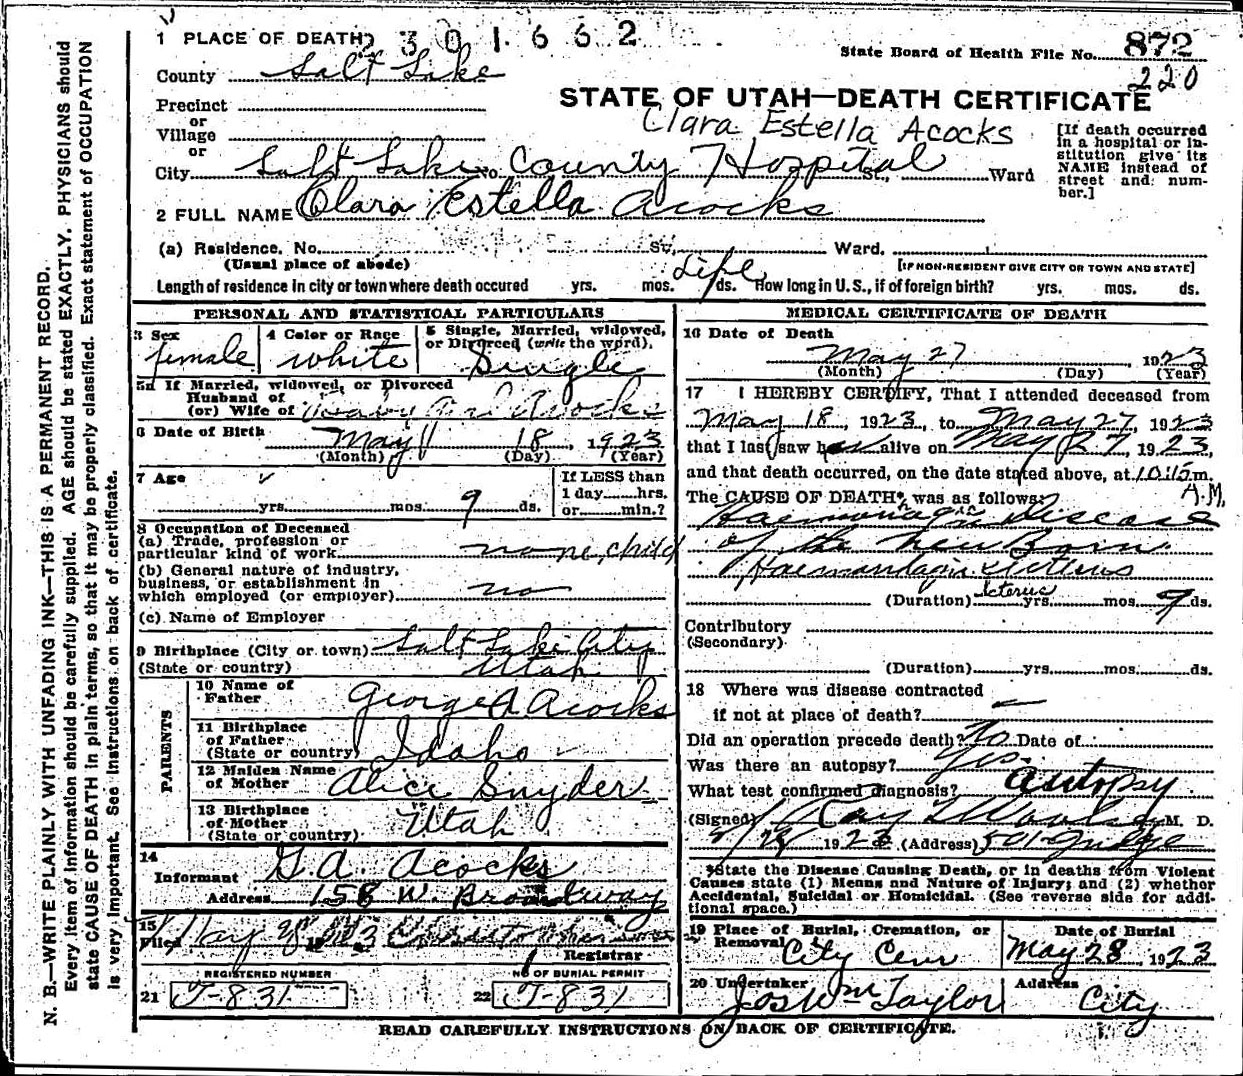 1 PLACE OF DEATH
2301662
State Board of Health File No. 872
220
County Salt Lake
Precinct
or
Village
or
STATE OF UTAH—DEATH CERTIFICATE
Clara Estella Acocks
[If death occurred in a hospital or institution give its NAME instead of street and number.]
City Salt Lake No. County Hospital St., Ward
2 FULL NAME Clara Estella Acocks
(a) Residence. No. St., Ward.
(Usual place of abode) [IF NON-RESIDENT GIVE CITY OR TOWN AND STATE]
Length of residence in city or town where death occured yrs. mos. Life ds. How long in U.S., if of foreign birth? yrs. mos. ds.
PERSONAL AND STATISTICAL PARTICULARS
3 Sex female
4 Color or Race white
5 Single, Married, widowed, or Divorced (write the word). Single
5a If Married, widowed, or Divorced
Husband of
(or) Wife of Baby girl Acocks
6 Date of Birth May 18, 1923
(Month) (Day) (Year)
7 Age
yrs. mos. 9 ds.
If LESS than
1 day hrs.
or min.?
8 Occupation of Deceased
(a) Trade, profession or
particular kind of work none, child
(b) General nature of industry,
business, or establishment in
which employed (or employer) no
(c) Name of Employer
9 Birthplace (City or town) Salt Lake City
(State or country) Utah
PARENTS
10 Name of Father George A Acocks
11 Birthplace of Father (State or country) Idaho
12 Maiden Name of Mother Alice Snyder
13 Birthplace of Mother (State or country) Utah
14
Informant G. A. Acocks
Address 158 W. Broadway
15
Filed May 1923
Registrar
REGISTERED NUMBER
21 J-831
NO OF BURIAL PERMIT
22 J-831
MEDICAL CERTIFICATE OF DEATH
16 Date of Death
May 27, 1923
(Month) (Day) (Year)
17 I HEREBY CERTIFY, That I attended deceased from
May 18, 1923, to May 27, 1923
that I last saw her alive on May 27, 1923,
and that death occurred, on the date stated above, at 10:15 m.
A.M.
The CAUSE OF DEATH* was as follows:
Haemorrhagic disease
of the new Born.
Icterus
(Duration) yrs. mos. 9 ds.
Contributory
(Secondary)
(Duration) yrs. mos. ds.
18 Where was disease contracted
if not at place of death?
Did an operation precede death? No Date of
Was there an autopsy? Yes.
What test confirmed diagnosis? autopsy
(Signed) M. D.
1923 (Address) 501 Judge
*State the Disease Causing Death, or in deaths from Violent
Causes state (1) Means and Nature of Injury; and (2) whether
Accidental, Suicidal or Homicidal. (See reverse side for additional space.)
19 Place of Burial, Cremation, or Removal City Cem
Date of Burial May 28, 1923
20 Undertaker Jos Wm Taylor
Address City
READ CAREFULLY INSTRUCTIONS ON BACK OF CERTIFICATE.
N. B.—WRITE PLAINLY WITH UNFADING INK—THIS IS A PERMANENT RECORD.
Every item of information should be carefully supplied. AGE should be stated EXACTLY. PHYSICIANS should
state CAUSE OF DEATH in plain terms, so that it may be properly classified. Exact statement of OCCUPATION
is very important. See instructions on back of certificate.